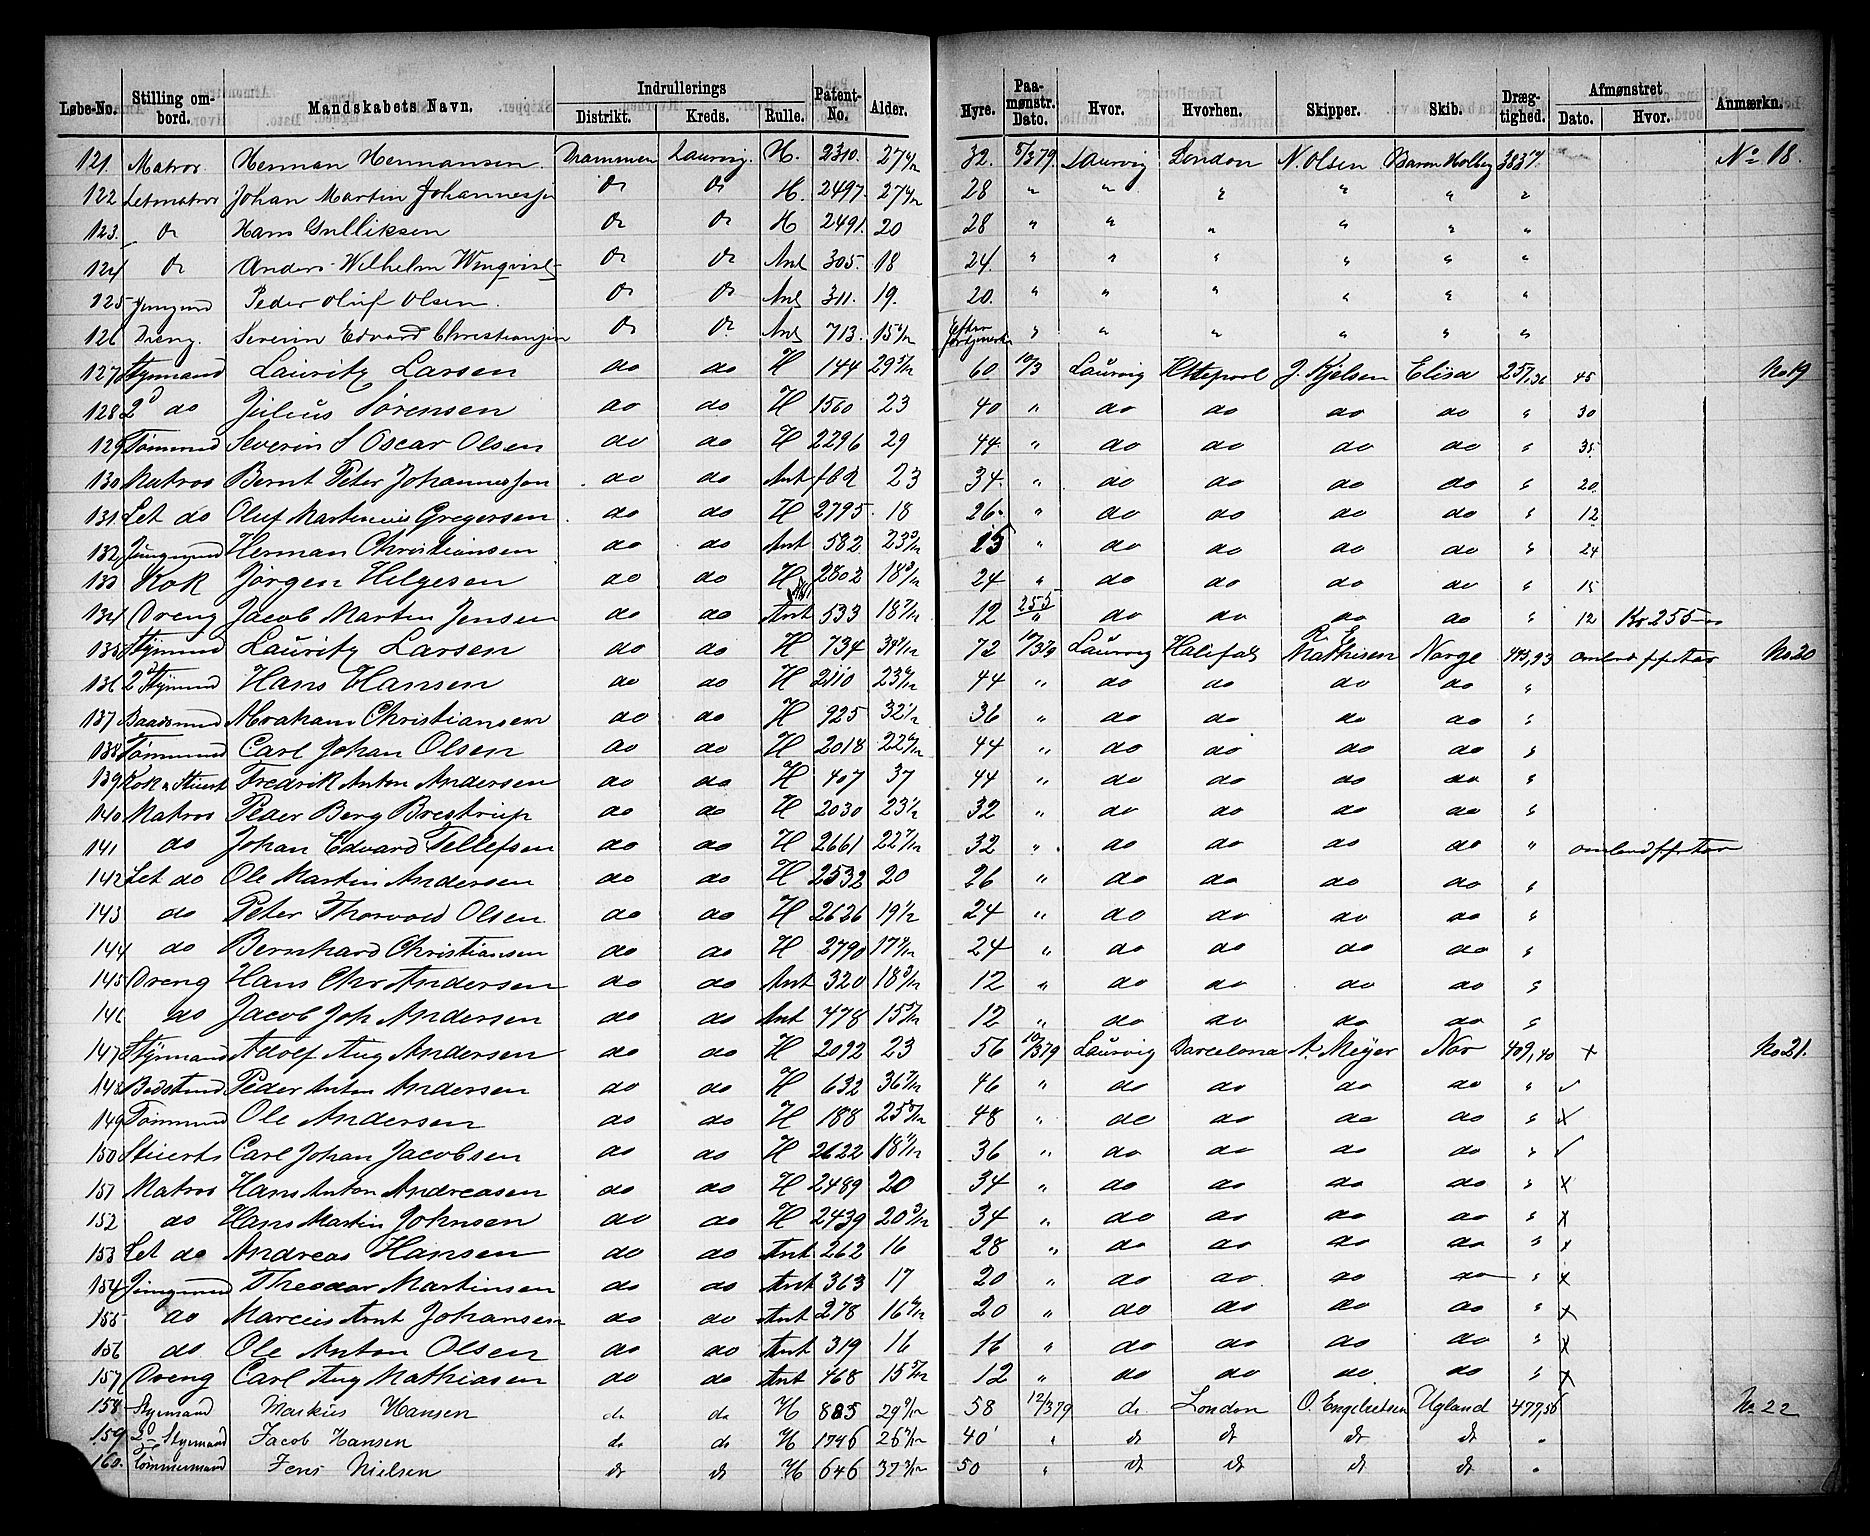 Løbe-No. Stilling ombord. Mandskabets Navn. Indrullerings Distrikt. Kreds. Rulle. Patent-No. Alder. Hyre. Paamønstr. Dato. Hvor. Hvorhen. Skipper. Skib. Drægtighed. Afmønstret Dato. Hvor. Anmærkn.
121. Matros. Herman Hermansen. Drammen Laurvig. H. 2310. 32. 5/3 79. Laurvig London N. Olsen Baron Holberg No 18.
122 Letmatros Johan Martin Johannessen do do H. 2497. 28 " " " " " "
123. do Hans Gulliksen do do H 2491. 20 28 " " " " " "
124 do Anders Wilhelm Winqvist do do Anl 305. 18 24. " " " " " "
125 Jungmd Peder Oluf Olsen. do do Anl 311. 19. 20. " " " " " "
126 Dreng. Severin Edvard Christiansen do do Anl 713. " " " " " "
127 Styrmand Lauritz Larsen do do H 144 29 5/12 60 10/3 Laurvig Httepool J. Kjelsen Elisa 257,36 45 No 19
128 2d do Julius Sørensen do do H 1560 23 40 " do do do do " 30
129 Tømmd Severin S Oscar Olsen do do H 2296 29 44 " do do do do " 35
130 Matros Bernt Peter Johannessen do do Ant 23 34 " do do do do " 20
131 Let do Oluf Martinius Gregersen do do H 2795 18 26 " do do do do " 12
132 Jungmd Herman Christiansen do do Ant 582 15 " do do do do " 24
133 Kok Jørgen Helgesen do do H 2802 24 " do do do do " 15
134 Dreng Jacob Martin Jensen do do Ant 533 18 7/12 12 255 " do do do do " 12 Kr 255
135 Styrmd Lauritz Larsen do do H 734 72 10/3 79 Laurvig Halifax R. E. Mathisen Norge 493,93 No 20
136 2d Styrmd Hans Hansen do do H 2110 44 " do do do do "
137 Baadsmd Abraham Christiansen do do H 925 36 " do do do do "
138 Tømmd Carl Johan Olsen do do H 2018 44 " do do do do "
139 Kok & Stuert Fredrik Anton Andersen do do H 407 37 44 " do do do do "
140 Matros Peder Berg Brestrup do do H 2030 32 " do do do do "
141 do Johan Edvard Tellefsen do do H 2661 22 7/12 32 " do do do do "
142 Let do Ole Martin Andersen do do H 2532 20 26 " do do do do "
143 do Peter Thorvald Olsen do do H 2626 24 " do do do do "
144 do Bernhard Christiansen do do H 2790 24 " do do do do "
145 Dreng Hans Chr Andersen do do Ant 320 18 3/12 12 " do do do do "
146 do Jacob Joh Andersen do do Ant 478 12 " do do do do "
147 Styrmand Adolf Aug Andersen do do H 2092 23 56 10/3 79 Laurvig Barcelona A. Meyer Nor 409,40 x No 21.
148 Bodstmd Peder Anton Andersen do do H 632 46 " do do do do " ✓
149 Tømmmd Ole Andersen do do H 188 48 " do do do do " x
150 Stuert Carl Johan Jacobsen do do H 2622 36 " do do do do " ✓
151 Matros Hans Anton Andreasen do do H 2489 20 34 " do do do do " x
152 do Hans Martin Johnsen do do H 2439 20 3/12 34 " do do do do " x
153 Let do Andreas Hansen do do Ant 262 16 28 " do do do do " x
154 Jungmd Theodor Martinsen do do Ant 363 17 20 " do do do do " x
155 do Marcus Arnt Johansen do do Ant 278 20 " do do do do " x
156 do Ole Anton Olsen do do Ant 319 16 16 " do do do do " x
157 Dreng Carl Aug Mathiasen do do Ant 468 15 5/12 12 " do do do do " x
158 Styrmand Markus Hansen do do H 885 58 12/3 79 do London O. Engebretsen Ugland 477,56 No 22
159 2d Styrmand Jacob Hansen do do H 1746 40 " do do do do "
160. Tømmermand Jens Nielsen do do H 646 50 " do do do do "